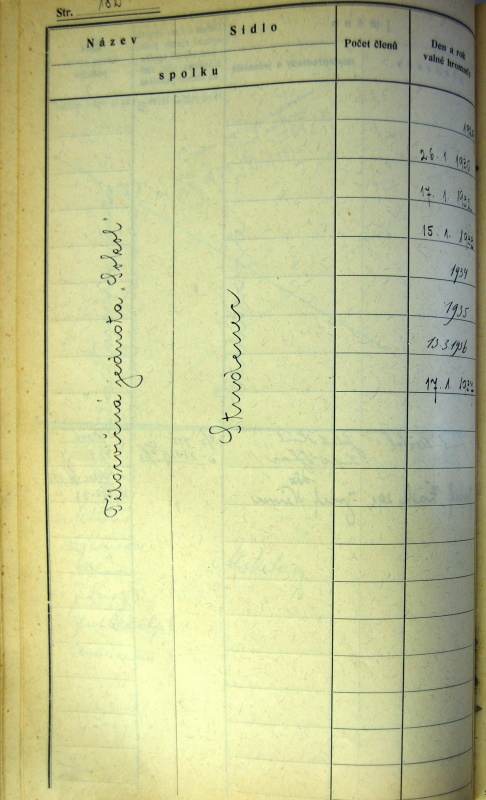 Str. 182
Název
Sídlo
spolku
Počet členů
Den a rok
valné hromady
Tělocvičná jednota „Sokol"
Studenec
26. 1. 1930
17. 1. 1932
15. 1. 1933
1934
1935
13.3.1936
17. 1. 1937